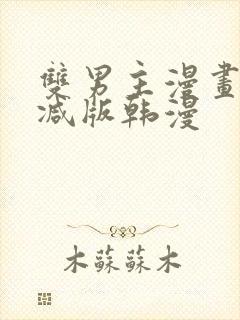 雙男主漫畫
减版韩漫
木蘇蘇木